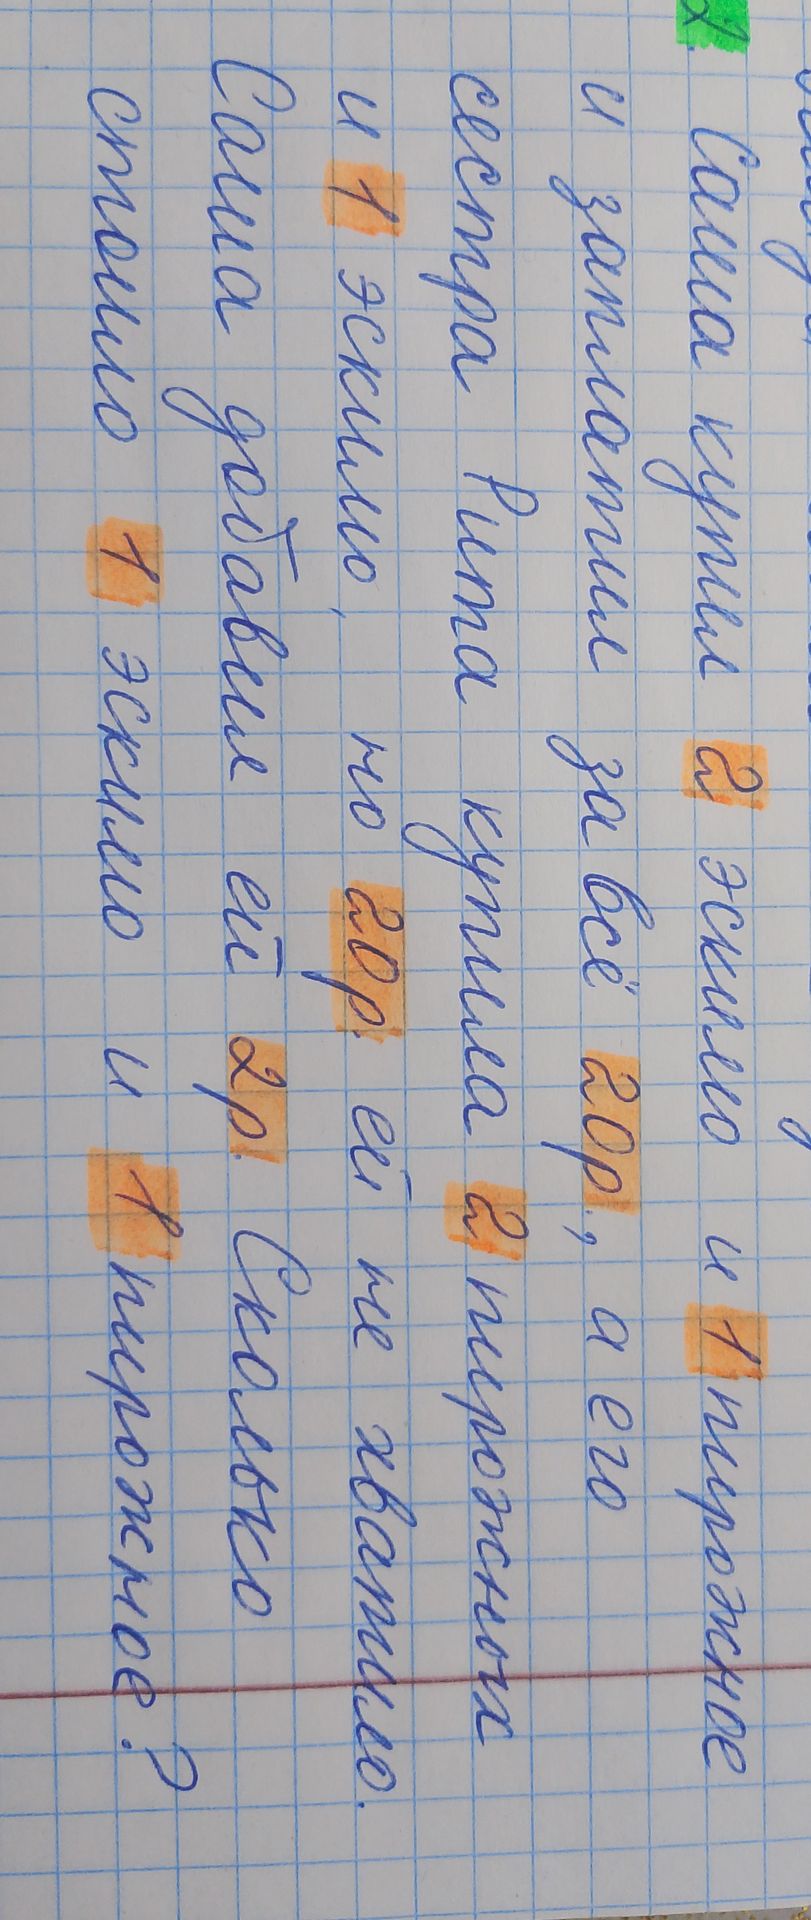 2. Саша купил 2 эскимо и 1 пирожное
и заплатил за всё 20р., а его
сестра Рита купила 2 пирожных
и 1 эскимо, но 20р. ей не хватило.
Саша добавил ей 2р. Сколько
стоило 1 эскимо и 1 пирожное?